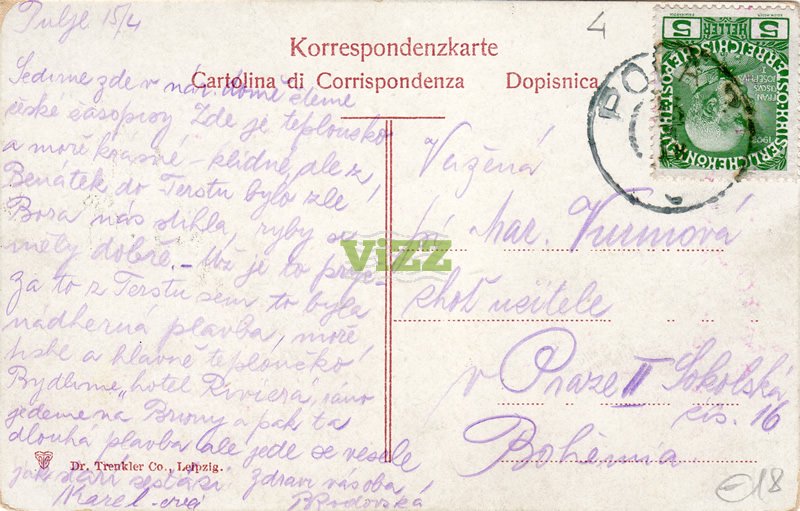 Pulje 15/4
Korrespondenzkarte
Cartolina di Corrispondenza Dopisnica
4
5 HELLER 5
POLA
Sedíme zde v nár. domě čteme
české časopisy Zde je teploučko
a moře krásné – klidné, ale z
Benátek do Terstu bylo zle!
Bora nás stihla, ryby se
měly dobře. – Už je to pryč
za to z Terstu sem to byla
nádherná plavba, moře
tiché a hlavně teploučko!
Bydlíme „hotel Riviera", ráno
jedeme na Briony a pak ta
dlouhá plavba ale jede se vesele
jak staří
Zdraví vás oba!
Karel
Vážená
pí Mar. Vurmová
choť učitele
v Praze II Sokolská
čís. 16
Bohemia
ViZZ
Dr. Trenkler Co., Leipzig.
18